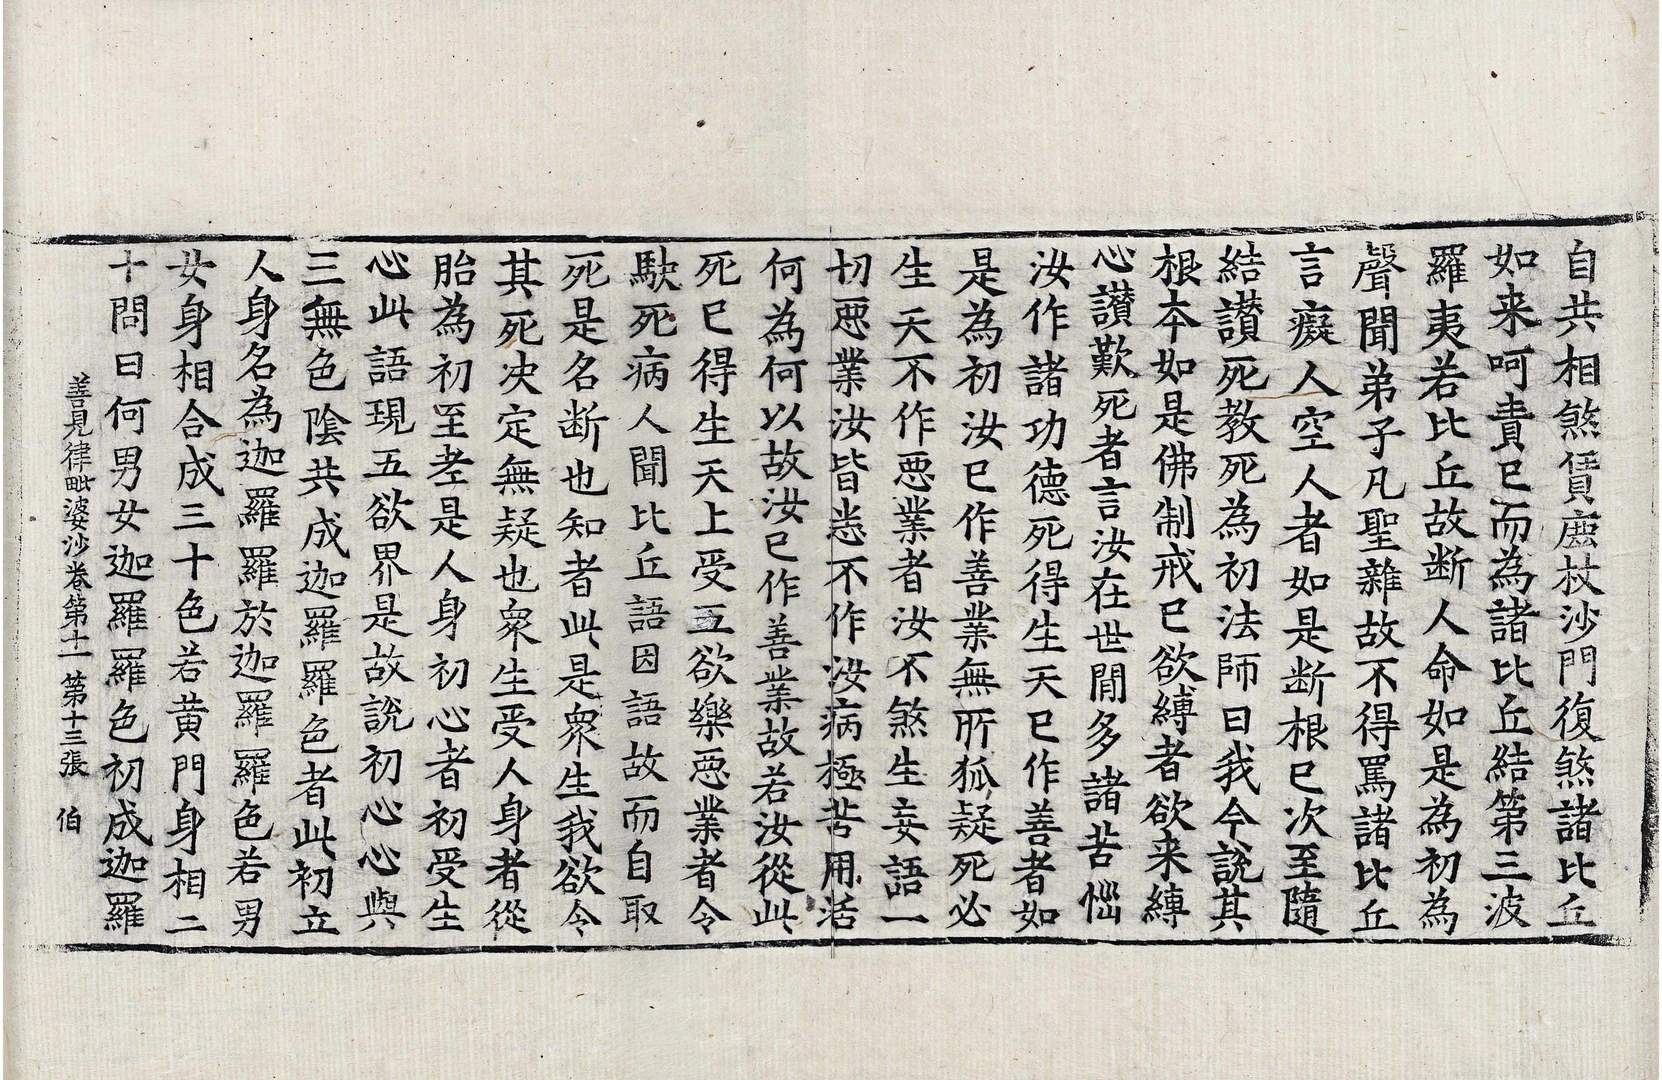 自共相煞賃鹿杖沙門復煞諸比丘
如来呵責已而為諸比丘結第三波
羅夷若比丘故断人命如是為初為
聲聞弟子凡聖雜故不得罵諸比丘
言癡人空人者如是断根已次至隨
結讃死教死為初法師曰我今說其
根本如是佛制戒已欲縛者欲来縛
心讃歎死者言汝在世間多諸苦惱
汝作諸功德死得生天已作善者如
是為初汝已作善業無所狐疑死必
生天不作惡業者汝不煞生妄語一
切惡業汝皆悉不作汝病極苦用活
何為何以故汝已作善業故若汝從此
死已得生天上受五欲樂惡業者令
駃死病人聞比丘語因語故而自取
死是名断也知者此是衆生我欲令
其死決定無疑也衆生受人身者從
胎為初至老是人身初心者初受生
心此語現五欲界是故說初心心與
三無色陰共成迦羅羅色者此初立
人身名為迦羅羅於迦羅羅色若男
女身相合成三十色若黄門身相二
十問曰何男女迦羅羅色初成迦羅
善見律毗婆沙卷第十一 第十三張 伯